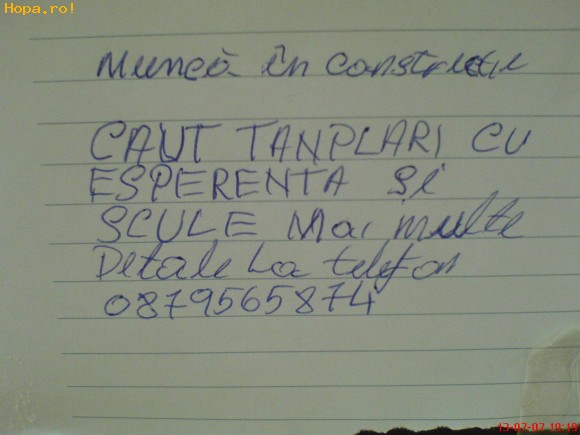 Hopa.ro!
Muncă în construcție
CAUT TANPLARI CU
ESPERENTA și
SCULE Mai multe
Detale La telefon
0879565874